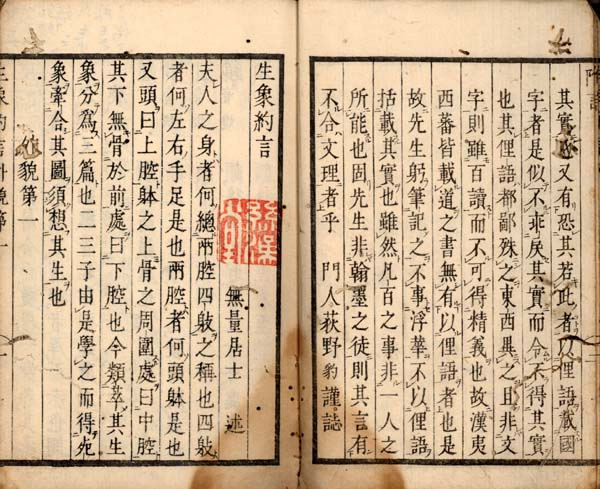 其實也又有恐其若此者以俚語載國
字者是似不乖戾其實而令不得其實
也其俚語都鄙殊之東西異之且非文
字則雖百讀而不可得精義也故漢夷
西蕃皆載道之書無有以俚語者也是
故先生躬筆記之不事浮華不以俚語
括載其實也雖然凡百之事非一人之
所能也固先生非翰墨之徒則其言有
不合文理者乎　門人荻野豹謹誌
生象約言
無量居士　述
夫人之身者何總兩腔四肢之稱也四肢
者何左右手足是也兩腔者何頭躰是也
又頭曰上腔躰之上骨之周圍處曰中腔
其下無骨於前處曰下腔也今類萃其生
象分爲三篇也二三子由是學之而得宛
象牽合其圖須想其生也
外貌第一
生象約言外貌第一